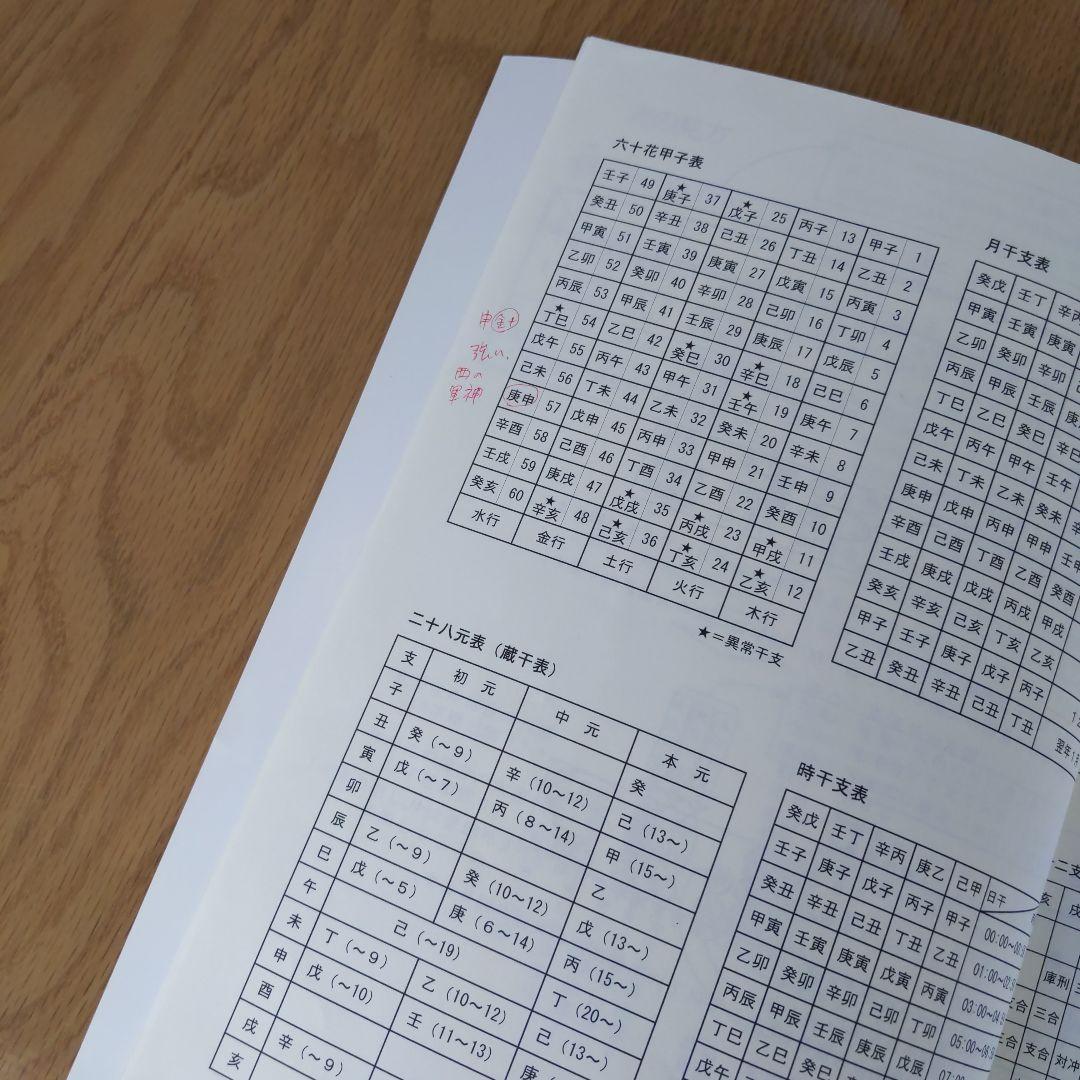 六十花甲子表
壬子 49 ★庚子 37 ★戊子 25 丙子 13 甲子 1
癸丑 50 辛丑 38 己丑 26 丁丑 14 乙丑 2
甲寅 51 壬寅 39 庚寅 27 戊寅 15 丙寅 3
乙卯 52 癸卯 40 辛卯 28 己卯 16 丁卯 4
丙辰 53 甲辰 41 壬辰 29 庚辰 17 戊辰 5
★丁巳 54 乙巳 42 ★癸巳 30 ★辛巳 18 己巳 6
戊午 55 丙午 43 甲午 31 ★壬午 19 庚午 7
己未 56 丁未 44 乙未 32 癸未 20 辛未 8
庚申 57 戊申 45 丙申 33 甲申 21 壬申 9
辛酉 58 己酉 46 丁酉 34 乙酉 22 癸酉 10
壬戌 59 庚戌 47 ★戊戌 35 ★丙戌 23 ★甲戌 11
癸亥 60 ★辛亥 48 ★己亥 36 ★丁亥 24 ★乙亥 12
水行 金行 土行 火行 木行
★=異常干支
強い、
西の
軍神
月干支表
癸戊 壬丁 辛丙
甲寅 壬寅 庚寅
乙卯 癸卯 辛卯
丙辰 甲辰 壬辰
丁巳 乙巳 癸巳 辛巳
戊午 丙午 甲午 壬午
己未 丁未 乙未 癸未
庚申 戊申 丙申 甲申
辛酉 己酉 丁酉 乙酉
壬戌 庚戌 戊戌 丙戌 甲戌
癸亥 辛亥 己亥 丁亥 乙亥
甲子 壬子 庚子 戊子 丙子
乙丑 癸丑 辛丑 己丑 丁丑
二十八元表(蔵干表)
支 初元 中元 本元
子 癸
丑 癸(~9) 辛(10~12) 己(13~)
寅 戊(~7) 丙(8~14) 甲(15~)
卯 乙
辰 乙(~9) 癸(10~12) 戊(13~)
巳 戊(~5) 庚(6~14) 丙(15~)
午 己(~19) 丁(20~)
未 丁(~9) 乙(10~12) 己(13~)
申 戊(~10) 壬(11~13)
酉
戌 辛(~9)
亥
時干支表
癸戊 壬丁 辛丙 庚乙 己甲 日干
壬子 庚子 戊子 丙子 甲子
癸丑 辛丑 己丑 丁丑 乙丑
甲寅 壬寅 庚寅 戊寅 丙寅
乙卯 癸卯 辛卯 己卯 丁卯
丙辰 甲辰 壬辰 庚辰 戊辰
丁巳 乙巳 癸巳
戊午
庫刑
三合
支合 対冲